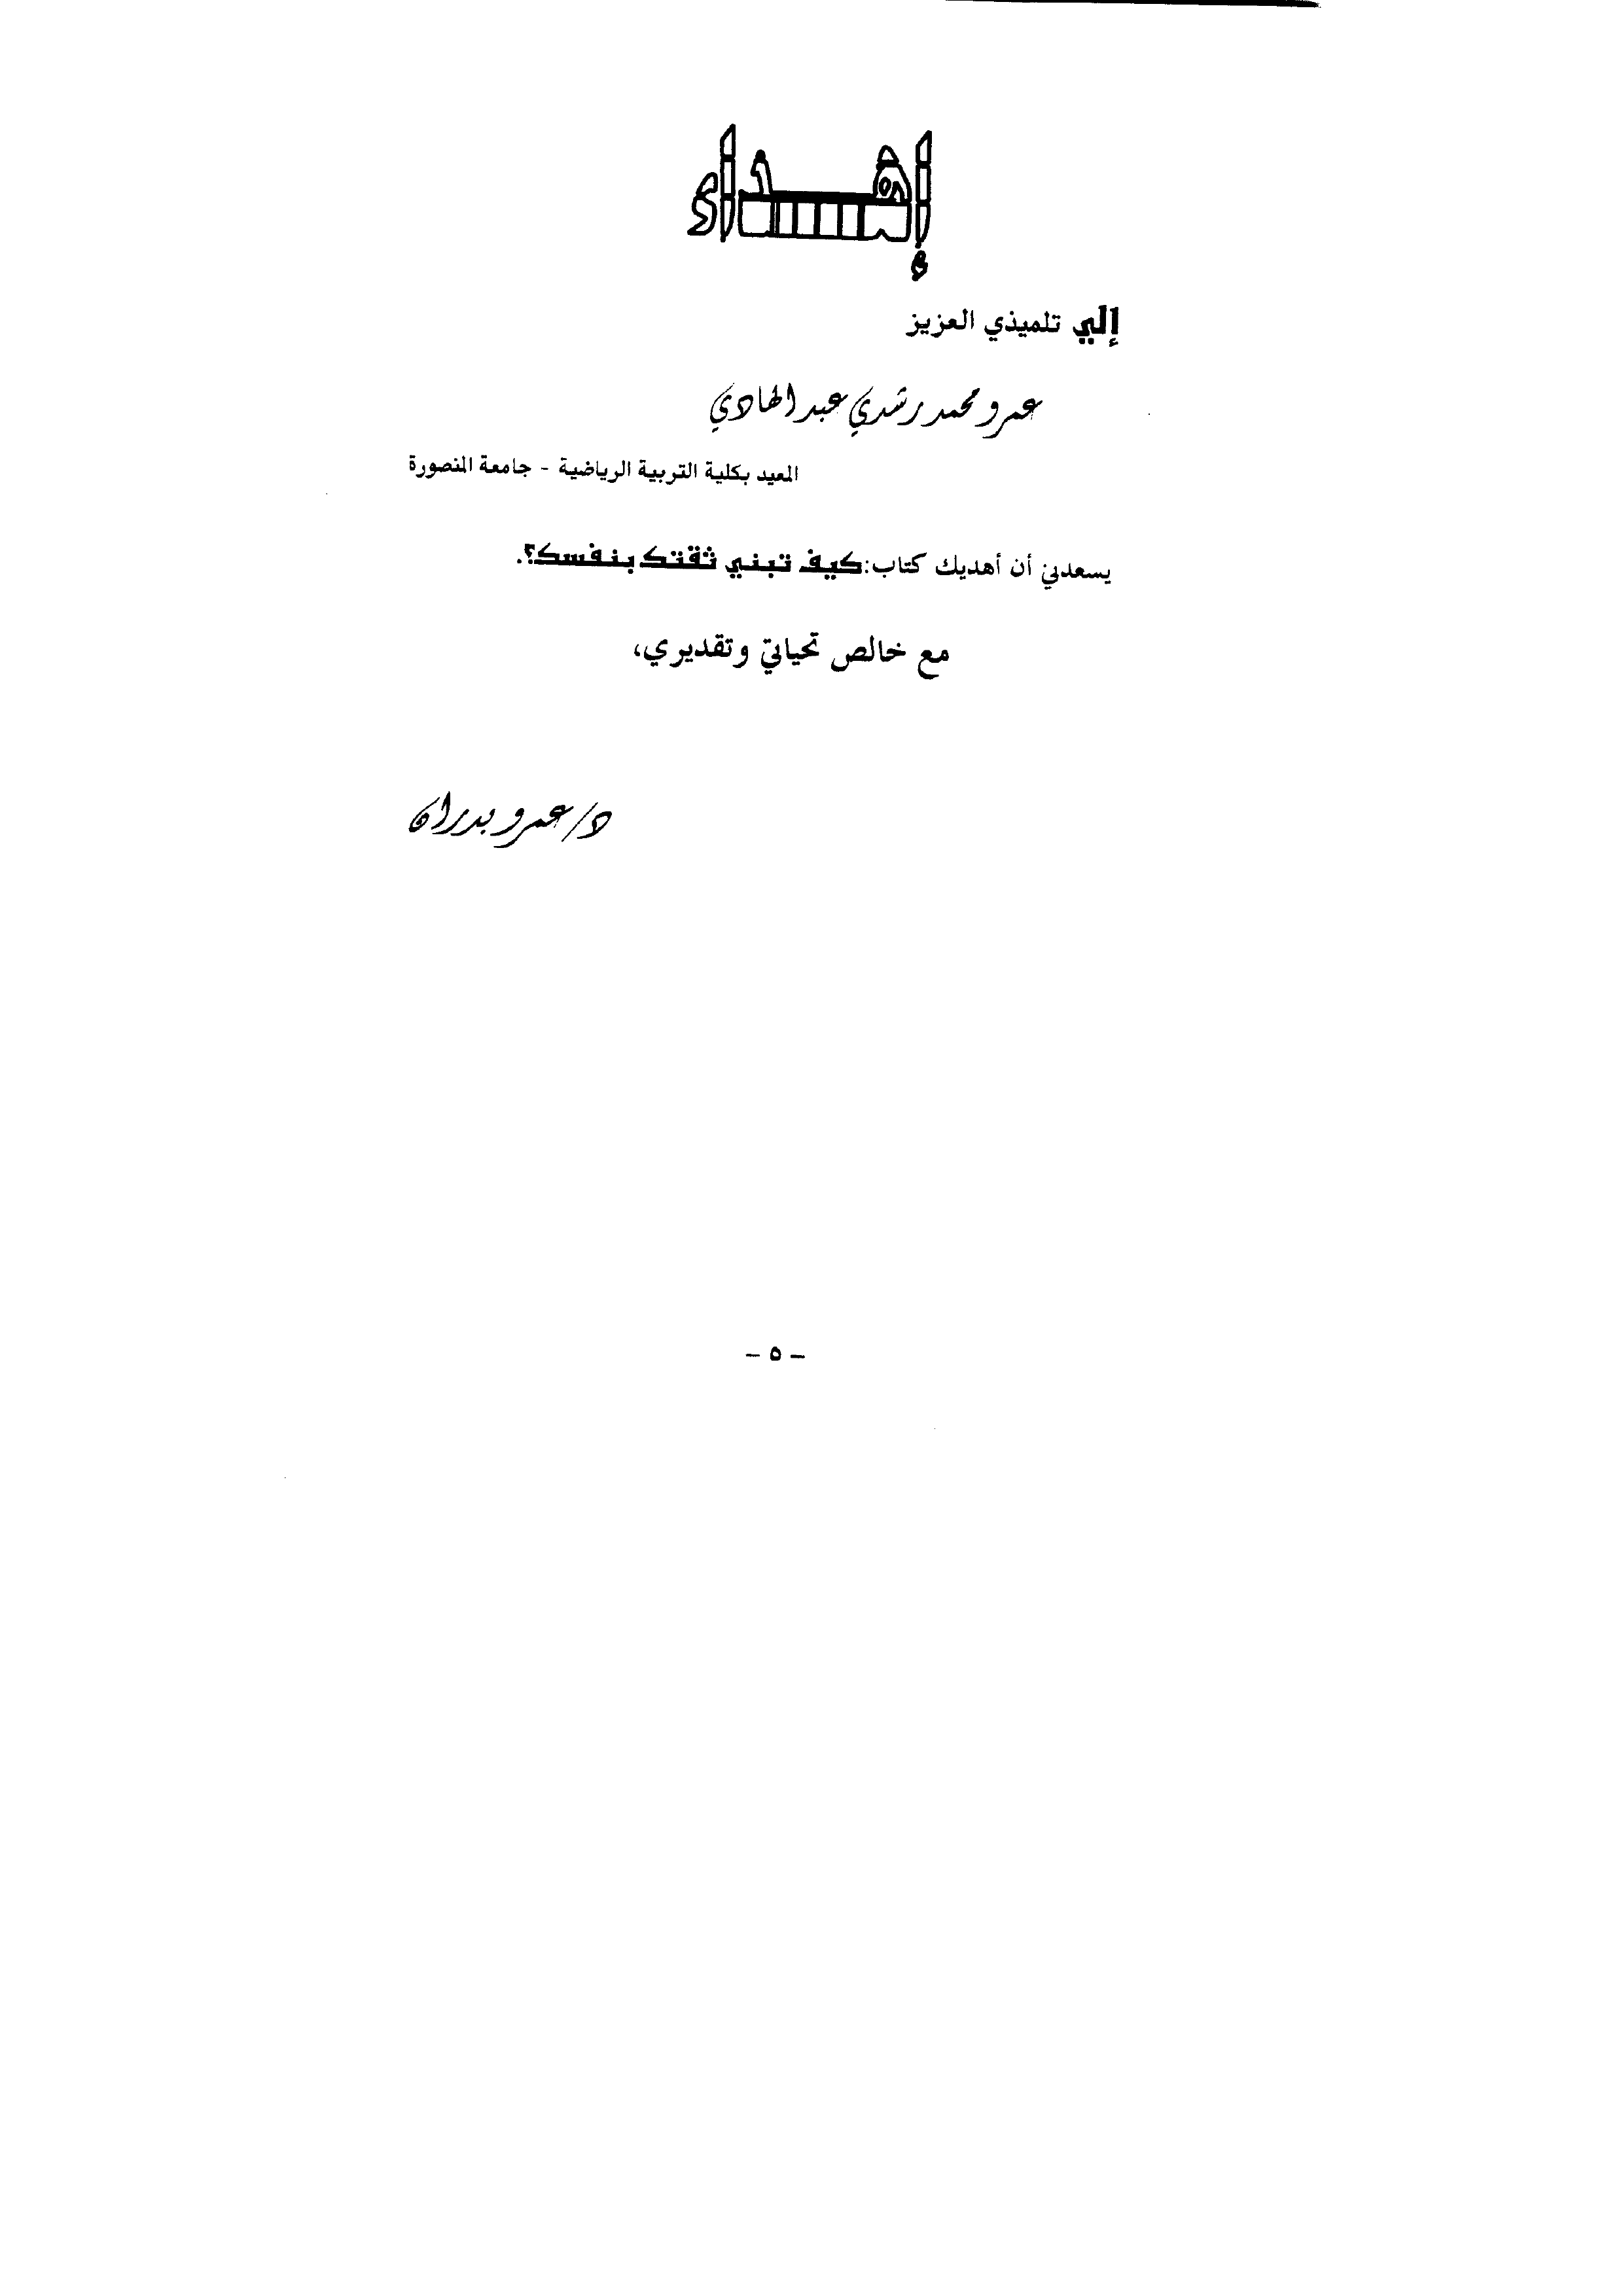 إهـــداء
إلي تلميذي العزيز
عمرو محمد رشدي عبد الهادي
المعيد بكلية التربية الرياضية - جامعة المنصورة
يسعدني أن أهديك كتاب: كيف تبني ثقتك بنفسك؟.
مع خالص تحياتي وتقديري،
د/ عمرو بدران
- ٥ -